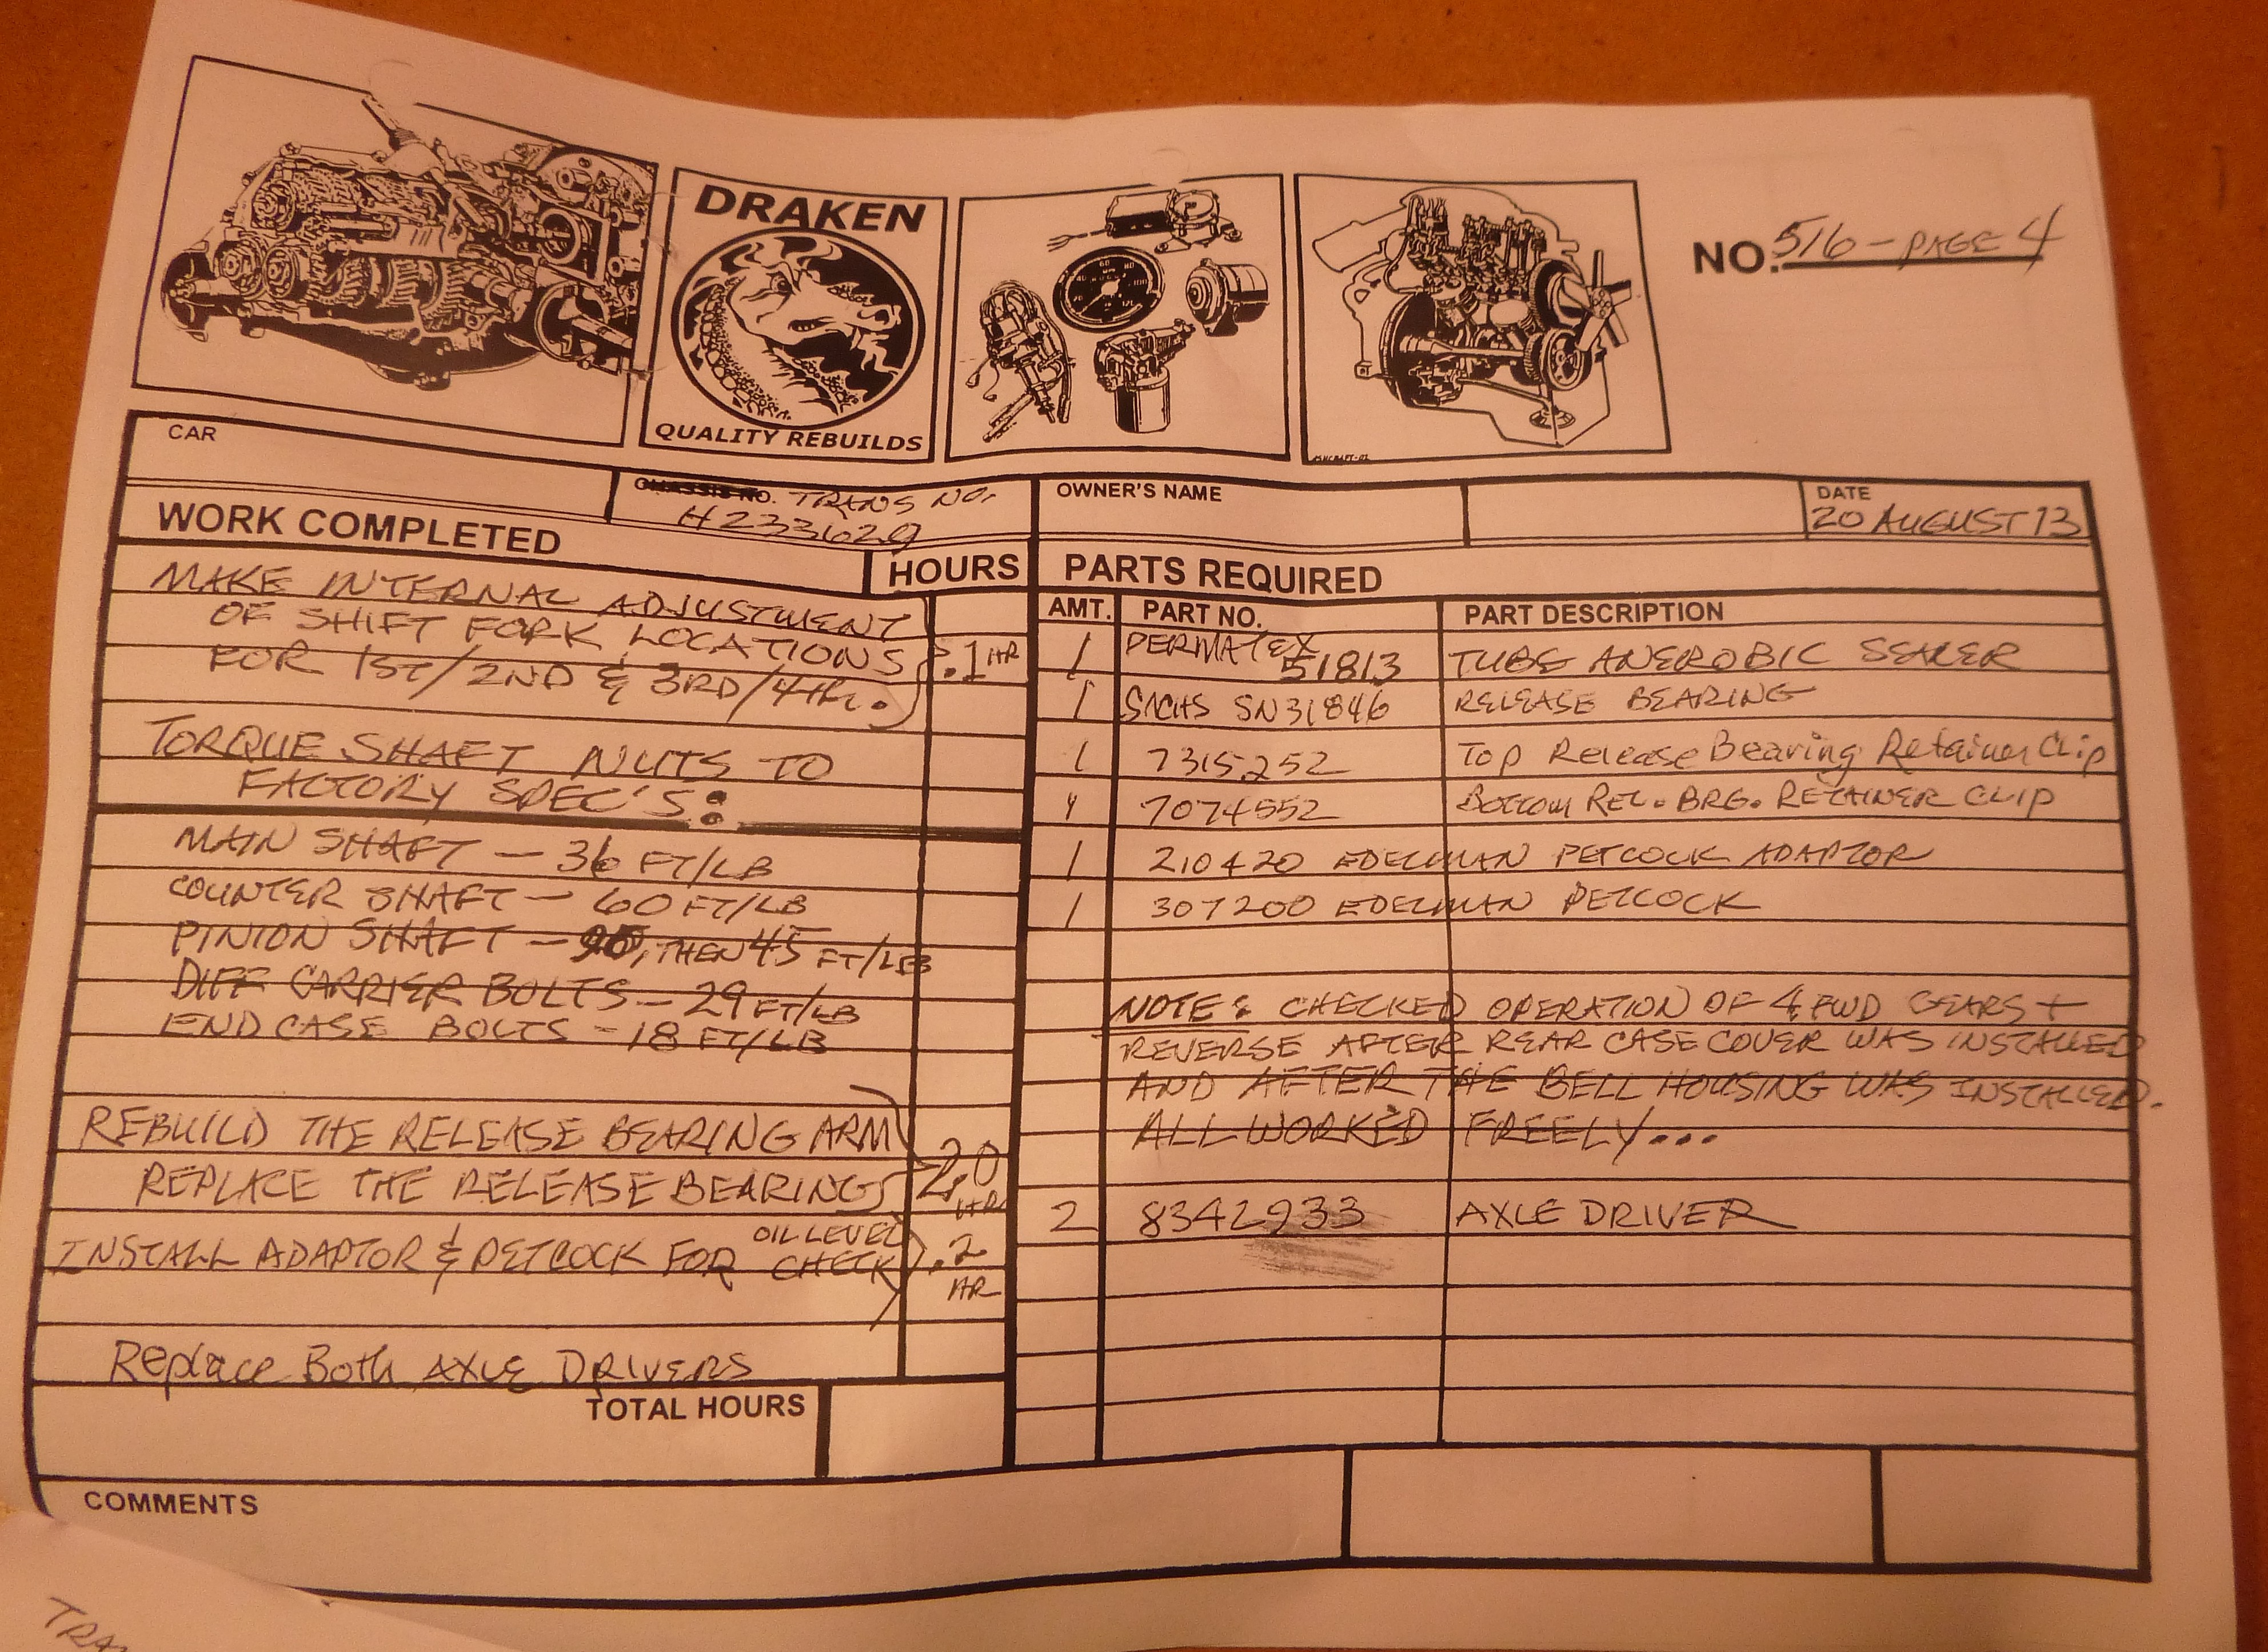 DRAKEN
QUALITY REBUILDS
NO. 516 - PAGE 4
CAR
CHASSIS NO. TRANS NO.
H233629
OWNER'S NAME
DATE
20 AUGUST 13
WORK COMPLETED
HOURS
MAKE INTERNAL ADJUSTMENT
OF SHIFT FORK LOCATIONS
FOR 1ST/2ND & 3RD/4TH.
.1 HR
TORQUE SHAFT NUTS TO
FACTORY SPEC'S:
MAIN SHAFT - 36 FT/LB
COUNTER SHAFT - 60 FT/LB
PINION SHAFT - , THEN 45 FT/LB
DIFF CARRIER BOLTS - 29 FT/LB
END CASE BOLTS - 18 FT/LB
REBUILD THE RELEASE BEARING ARM
REPLACE THE RELEASE BEARING
2.0
HR
INSTALL ADAPTOR & PETCOCK FOR OIL LEVEL
CHECK
.2
HR
Replace Both AXLE DRIVERS
TOTAL HOURS
PARTS REQUIRED
AMT. PART NO. PART DESCRIPTION
1 PERMATEX 51813 TUBE ANEROBIC SEALER
1 SACHS SN31846 RELEASE BEARING
1 7315252 Top Release Bearing Retainer Clip
7074552 BOTTOM REL. BRG. RETAINER CLIP
1 210420 EDELMAN PETCOCK ADAPTOR
1 307200 EDELMAN PETCOCK
NOTE: CHECKED OPERATION OF 4 FWD GEARS +
REVERSE AFTER REAR CASE COVER WAS INSTALLED
AND AFTER THE BELL HOUSING WAS INSTALLED.
ALL WORKED FREELY...
2 8342933 AXLE DRIVER
COMMENTS